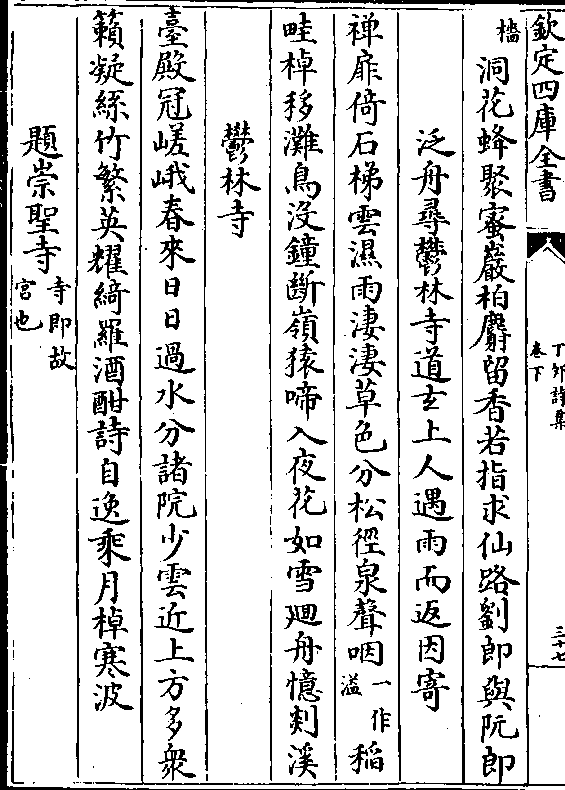 欽定四庫全書
丁卯詩集
卷下
三十七
檣洞花蜂聚蜜巖柏麝留香若指求仙路劉郎與阮郎
泛舟尋鬱林寺道玄上人遇雨而返因寄
禪扉倚石梯雲濕雨淒淒草色分松徑泉聲咽一作溢稻
畦棹移灘鳥沒鐘斷嶺猿啼入夜花如雪廻舟憶剡溪
鬱林寺
臺殿冠嵯峨春來日日過水分諸院少雲近上方多衆
籟凝絲竹繁英耀綺羅酒酣詩自逸乘月棹寒波
題崇聖寺寺即故宮也